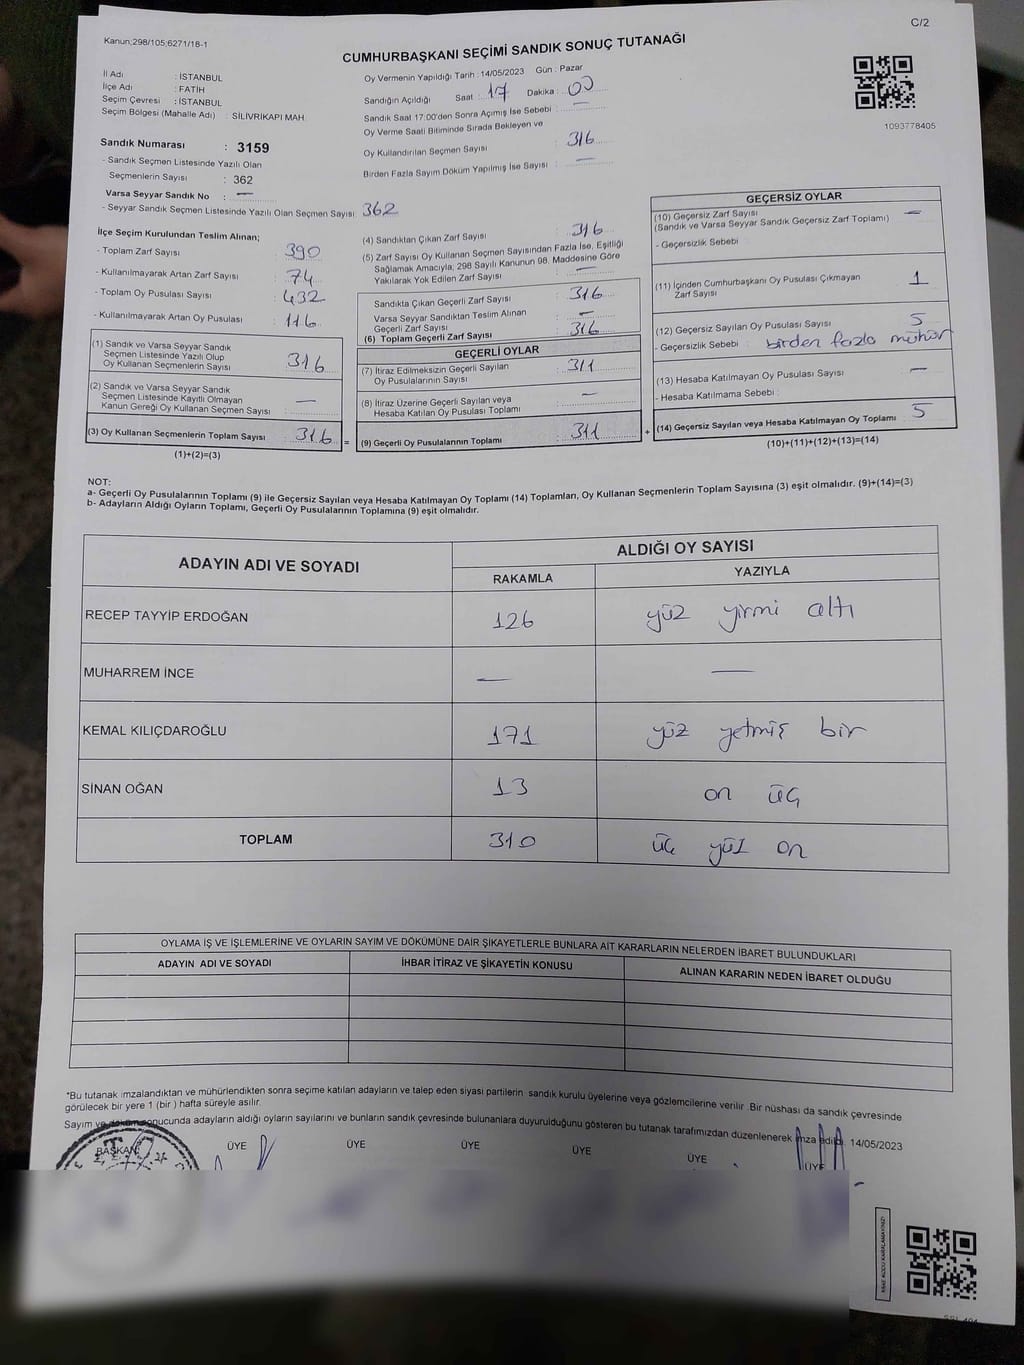 C/2
Kanun;298/105;6271/18-1
CUMHURBAŞKANI SEÇİMİ SANDIK SONUÇ TUTANAĞI
İl Adı : İSTANBUL
İlçe Adı : FATİH
Seçim Çevresi : İSTANBUL
Seçim Bölgesi (Mahalle Adı) : SİLİVRİKAPI MAH.
Oy Vermenin Yapıldığı Tarih : 14/05/2023 Gün : Pazar
Sandığın Açıldığı Saat : 17 Dakika : 00
Sandık Saat 17:00'den Sonra Açımış İse Sebebi : —
Oy Verme Saati Bitiminde Sırada Bekleyen ve
Oy Kullandırılan Seçmen Sayısı : 316
Birden Fazla Sayım Döküm Yapılmış İse Sayısı : —
1093778405
Sandık Numarası : 3159
- Sandık Seçmen Listesinde Yazılı Olan
Seçmenlerin Sayısı : 362
Varsa Seyyar Sandık No : —
- Seyyar Sandık Seçmen Listesinde Yazılı Olan Seçmen Sayısı: 362
İlçe Seçim Kurulundan Teslim Alınan;
- Toplam Zarf Sayısı : 390
- Kullanılmayarak Artan Zarf Sayısı : 74
- Toplam Oy Pusulası Sayısı : 432
- Kullanılmayarak Artan Oy Pusulası : 116
(1) Sandık ve Varsa Seyyar Sandık
Seçmen Listesinde Yazılı Olup
Oy Kullanan Seçmenlerin Sayısı : 316
(2) Sandık ve Varsa Seyyar Sandık
Seçmen Listesinde Kayıtlı Olmayan
Kanun Gereği Oy Kullanan Seçmen Sayısı : —
(3) Oy Kullanan Seçmenlerin Toplam Sayısı : 316 =
(1)+(2)=(3)
(4) Sandıktan Çıkan Zarf Sayısı : 316
(5) Zarf Sayısı Oy Kullanan Seçmen Sayısından Fazla İse, Eşitliği
Sağlamak Amacıyla, 298 Sayılı Kanunun 98. Maddesine Göre
Yakılarak Yok Edilen Zarf Sayısı : —
Sandıkta Çıkan Geçerli Zarf Sayısı : 316
Varsa Seyyar Sandıktan Teslim Alınan
Geçerli Zarf Sayısı : —
(6) Toplam Geçerli Zarf Sayısı : 316
GEÇERLİ OYLAR
(7) İtiraz Edilmeksizin Geçerli Sayılan
Oy Pusulalarının Sayısı : 311
(8) İtiraz Üzerine Geçerli Sayılan veya
Hesaba Katılan Oy Pusulası Toplamı : —
(9) Geçerli Oy Pusulalarının Toplamı : 311 +
GEÇERSİZ OYLAR
(10) Geçersiz Zarf Sayısı : —
(Sandık ve Varsa Seyyar Sandık Geçersiz Zarf Toplamı)
- Geçersizlik Sebebi
(11) İçinden Cumhurbaşkanı Oy Pusulası Çıkmayan
Zarf Sayısı : 1
(12) Geçersiz Sayılan Oy Pusulası Sayısı : 5
- Geçersizlik Sebebi : birden fazla mühür
(13) Hesaba Katılmayan Oy Pusulası Sayısı : —
- Hesaba Katılmama Sebebi :
(14) Geçersiz Sayılan veya Hesaba Katılmayan Oy Toplamı : 5
(10)+(11)+(12)+(13)=(14)
NOT:
a- Geçerli Oy Pusulalarının Toplamı (9) ile Geçersiz Sayılan veya Hesaba Katılmayan Oy Toplamı (14) Toplamları, Oy Kullanan Seçmenlerin Toplam Sayısına (3) eşit olmalıdır. (9)+(14)=(3)
b- Adayların Aldığı Oyların Toplamı, Geçerli Oy Pusulalarının Toplamına (9) eşit olmalıdır.
ADAYIN ADI VE SOYADI ALDIĞI OY SAYISI
RAKAMLA YAZIYLA
RECEP TAYYİP ERDOĞAN 126 yüz yirmi altı
MUHARREM İNCE — —
KEMAL KILIÇDAROĞLU 171 yüz yetmiş bir
SİNAN OĞAN 13 on üç
TOPLAM 310 üç yüz on
OYLAMA İŞ VE İŞLEMLERİNE VE OYLARIN SAYIM VE DÖKÜMÜNE DAİR ŞİKAYETLERLE BUNLARA AİT KARARLARIN NELERDEN İBARET BULUNDUKLARI
ADAYIN ADI VE SOYADI İHBAR İTİRAZ VE ŞİKAYETİN KONUSU ALINAN KARARIN NEDEN İBARET OLDUĞU
*Bu tutanak imzalandıktan ve mühürlendikten sonra seçime katılan adayların ve talep eden siyasi partilerin sandık kurulu üyelerine veya gözlemcilerine verilir. Bir nüshası da sandık çevresinde
görülecek bir yere 1 (bir) hafta süreyle asılır.
Sayım ve döküm sonucunda adayların aldığı oyların sayılarını ve bunların sandık çevresinde bulunanlara duyurulduğunu gösteren bu tutanak tarafımızdan düzenlenerek imza edildi. 14/05/2023
BAŞKAN ÜYE ÜYE ÜYE ÜYE ÜYE ÜYE